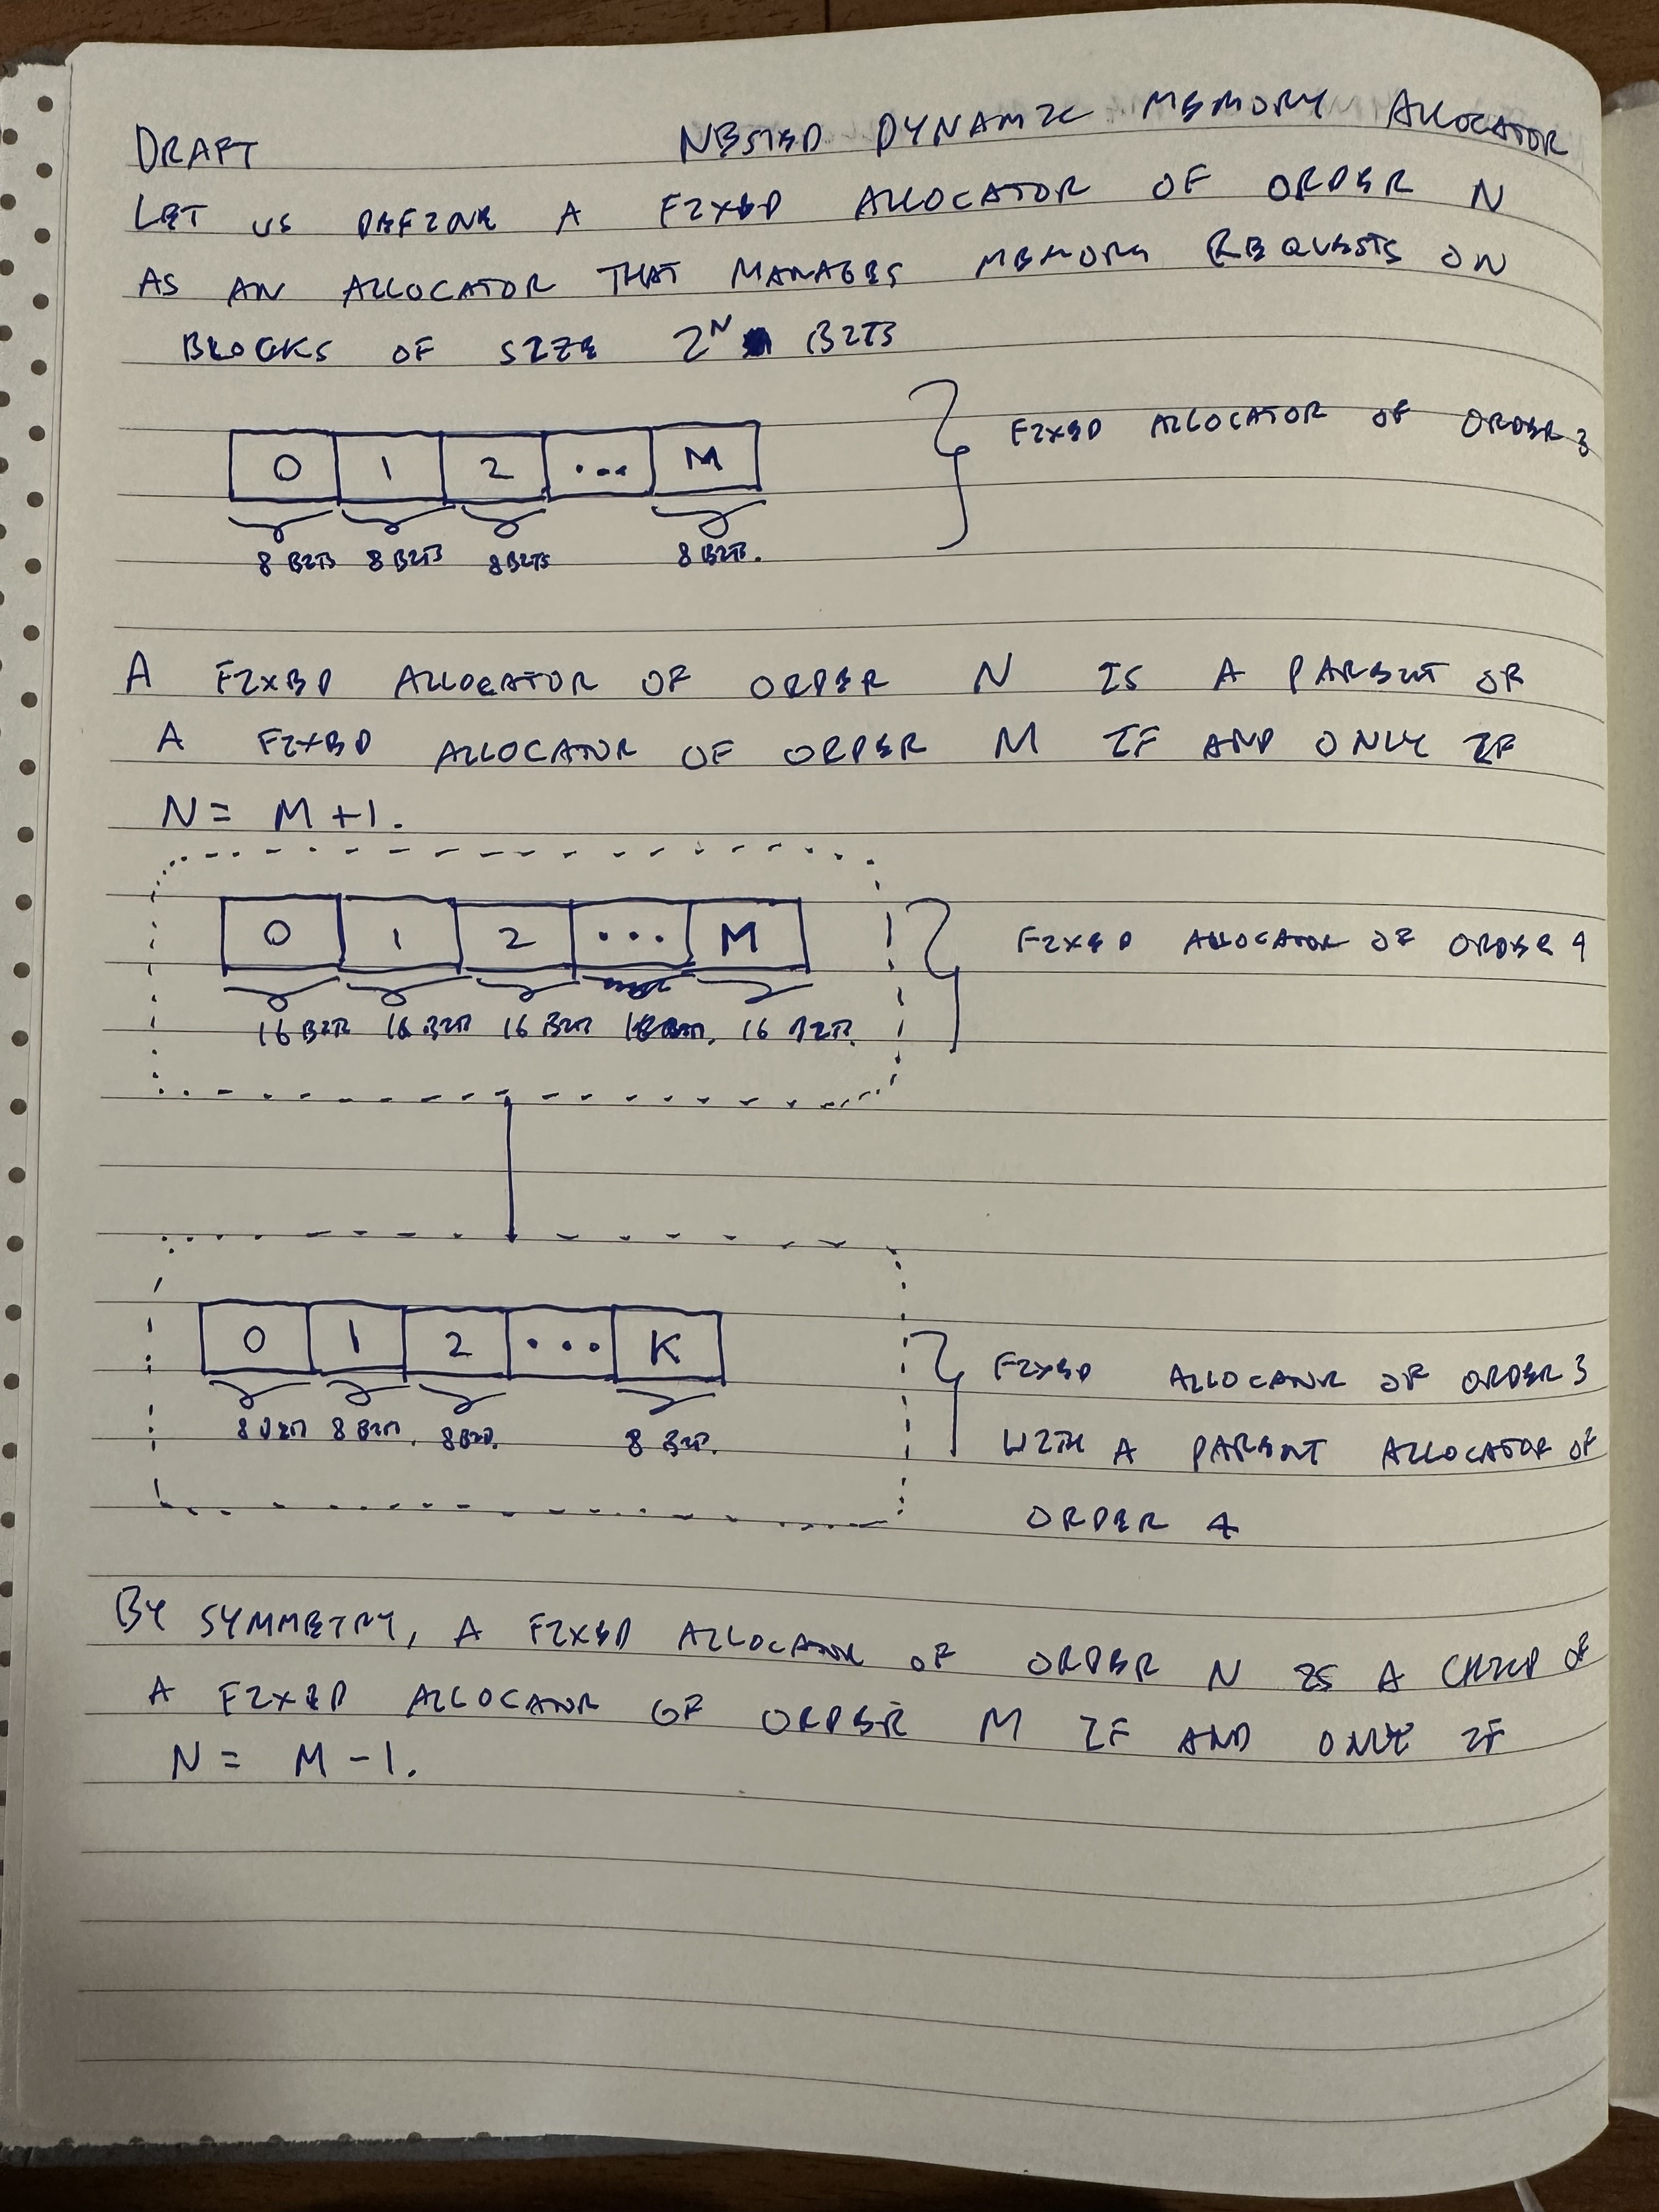 DRAFT NESTED DYNAMIC MEMORY ALLOCATOR
LET US DEFINE A FIXED ALLOCATOR OF ORDER N
AS AN ALLOCATOR THAT MANAGES MEMORY REQUESTS ON
BLOCKS OF SIZE 2^N BITS
0 1 2 ... M FIXED ALLOCATOR OF ORDER 3
8 BITS 8 BITS 8 BITS 8 BITS.
A FIXED ALLOCATOR OF ORDER N IS A PARENT OF
A FIXED ALLOCATOR OF ORDER M IF AND ONLY IF
N = M + 1.
0 1 2 ... M FIXED ALLOCATOR OF ORDER 4
16 BITS 16 BITS 16 BITS 16 BITS.
0 1 2 ... K
FIXED ALLOCATOR OF ORDER 3
8 BITS 8 BITS. 8 BITS. 8 BITS.
WITH A PARENT ALLOCATOR OF
ORDER 4
BY SYMMETRY, A FIXED ALLOCATOR OF ORDER N IS A CHILD OF
A FIXED ALLOCATOR OF ORDER M IF AND ONLY IF
N = M - 1.